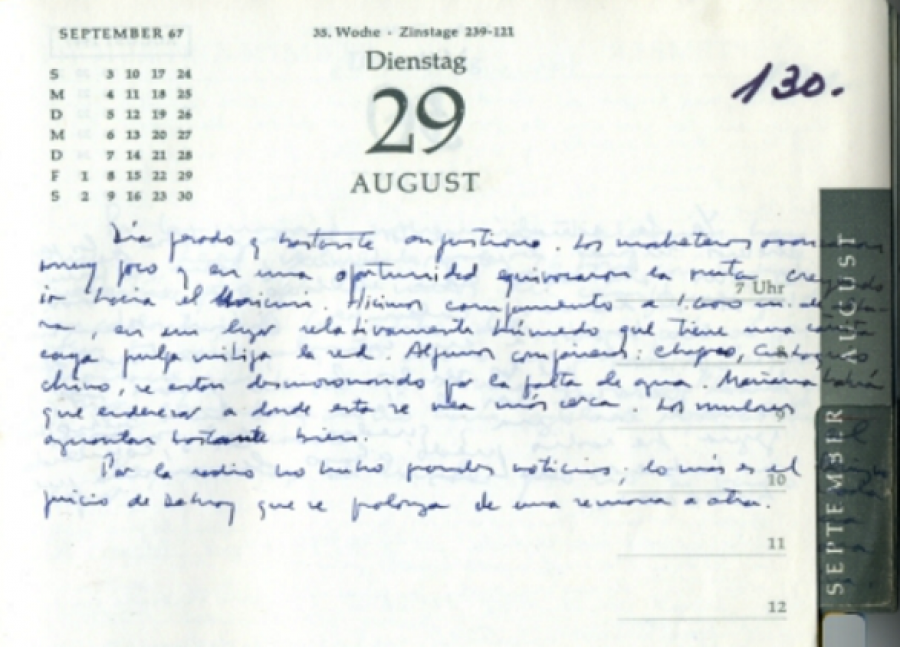 SEPTEMBER 67
35. Woche · Zinstage 239-121
Dienstag
29
AUGUST
130.
S 3 10 17 24
M 4 11 18 25
D 5 12 19 26
M 6 13 20 27
D 7 14 21 28
F 1 8 15 22 29
S 2 9 16 23 30
Día pesado y bastante angustioso. Los macheteros avanzaron
muy poco y en una oportunidad equivocaron la ruta creyendo
ir hacia el Masicuri. Hicimos campamento a 1.600 m. de altu-
ra, en un lugar relativamente húmedo que tiene una cañita
cuya pulpa mitiga la red. Algunos compañeros: Chapaco, Eustaquio
Chino, se están desmoronando por la falta de agua. Mañana habrá
que enderezar a donde esta se vea más cerca. Los mulares
aguantan bastante bien.
Por la radio no hubo grandes noticias; lo más es el
juicio de Debray que se prolonga de una semana a otra.
7 Uhr
8
9
10
11
12
AUGUST
SEPTEMBER